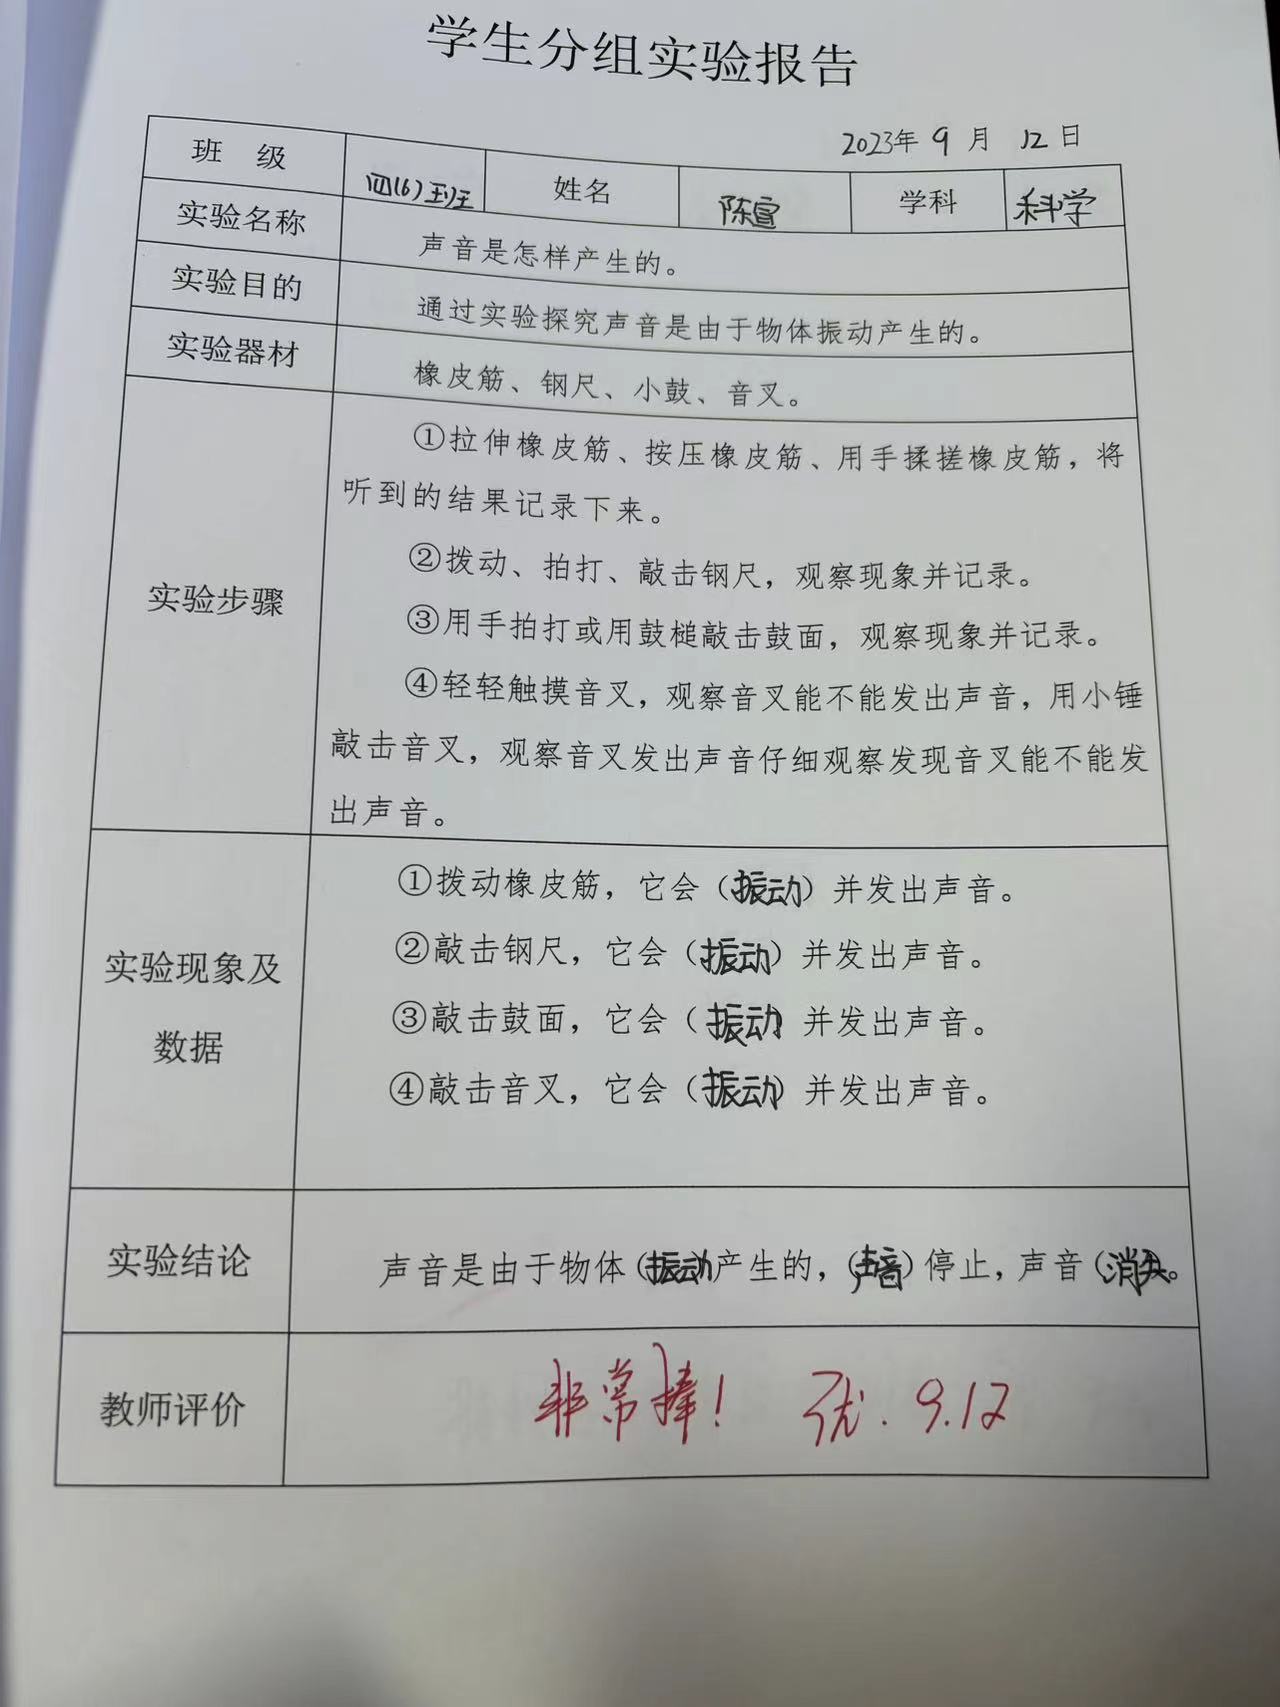 学生分组实验报告
2023年 9 月 12 日
班 级 四(6)班 姓名 陈宣 学科 科学
实验名称 声音是怎样产生的。
实验目的 通过实验探究声音是由于物体振动产生的。
实验器材 橡皮筋、钢尺、小鼓、音叉。
实验步骤
①拉伸橡皮筋、按压橡皮筋、用手揉搓橡皮筋，将
听到的结果记录下来。
②拨动、拍打、敲击钢尺，观察现象并记录。
③用手拍打或用鼓槌敲击鼓面，观察现象并记录。
④轻轻触摸音叉，观察音叉能不能发出声音，用小锤
敲击音叉，观察音叉发出声音仔细观察发现音叉能不能发
出声音。
实验现象及
数据
①拨动橡皮筋，它会（振动）并发出声音。
②敲击钢尺，它会（振动）并发出声音。
③敲击鼓面，它会（振动）并发出声音。
④敲击音叉，它会（振动）并发出声音。
实验结论 声音是由于物体（振动）产生的，（声音）停止，声音（消失）。
教师评价 非常棒！ 优．9.12